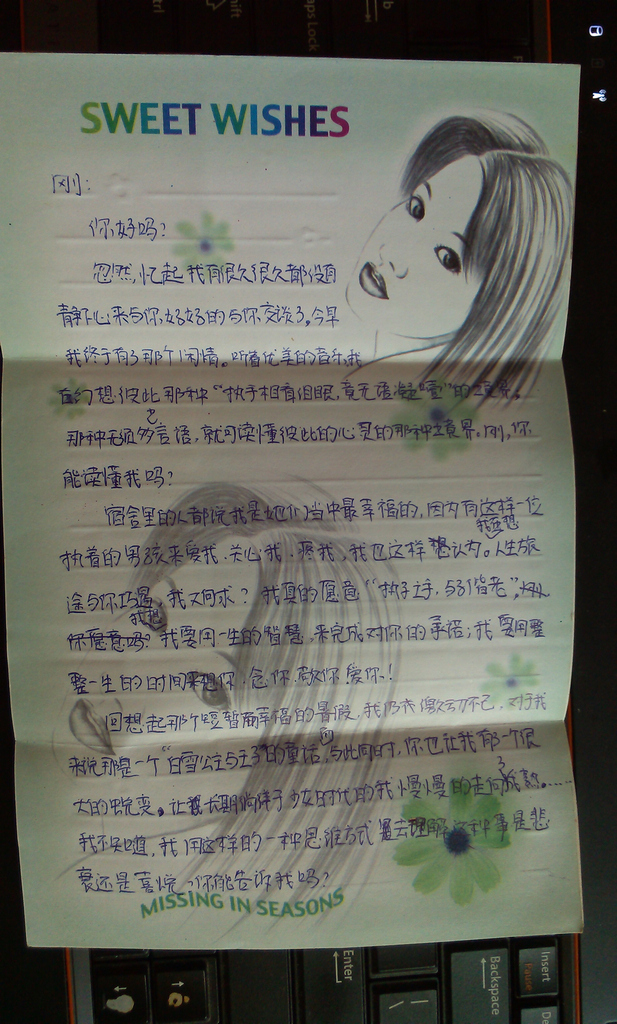 SWEET WISHES
刚:
你好吗?
忽然,忆起我有很久很久都没有
静下心来与你好好的与你交谈了。今早
我终于有了那个闲情。听着优美的音乐,我
在幻想彼此那种“执手相看泪眼,竟无语凝噎”的境界。
那种无须多言语,就可读懂彼此的心灵的那种境界。刚,你
能读懂我吗?
宿舍里的人都说我是她们当中最幸福的,因为有这样一位
执着的男孩来爱我.关心我.疼我,我也这样认为。人生旅
途与你巧遇,我又何求?我真的愿意“执子之手,与子偕老”,
你愿意吗?我要用一生的智慧,来完成对你的承诺;我要用整
整一生的时间来想你.念你.敬你.爱你!
回想起那个短暂而幸福的暑假,我仍激动不已,对于我
来说那是一个“白雪公主与王子”的童话,与此同时,你也让我有一个很
大的蜕变。让长期徜徉于少女时代的我慢慢的走向成熟......
我不知道,我用这样的一种思维方式去理解这种事是悲
哀还是喜悦,你能告诉我吗?
MISSING IN SEASONS
Caps Lock
Enter
Backspace
Insert
Pause